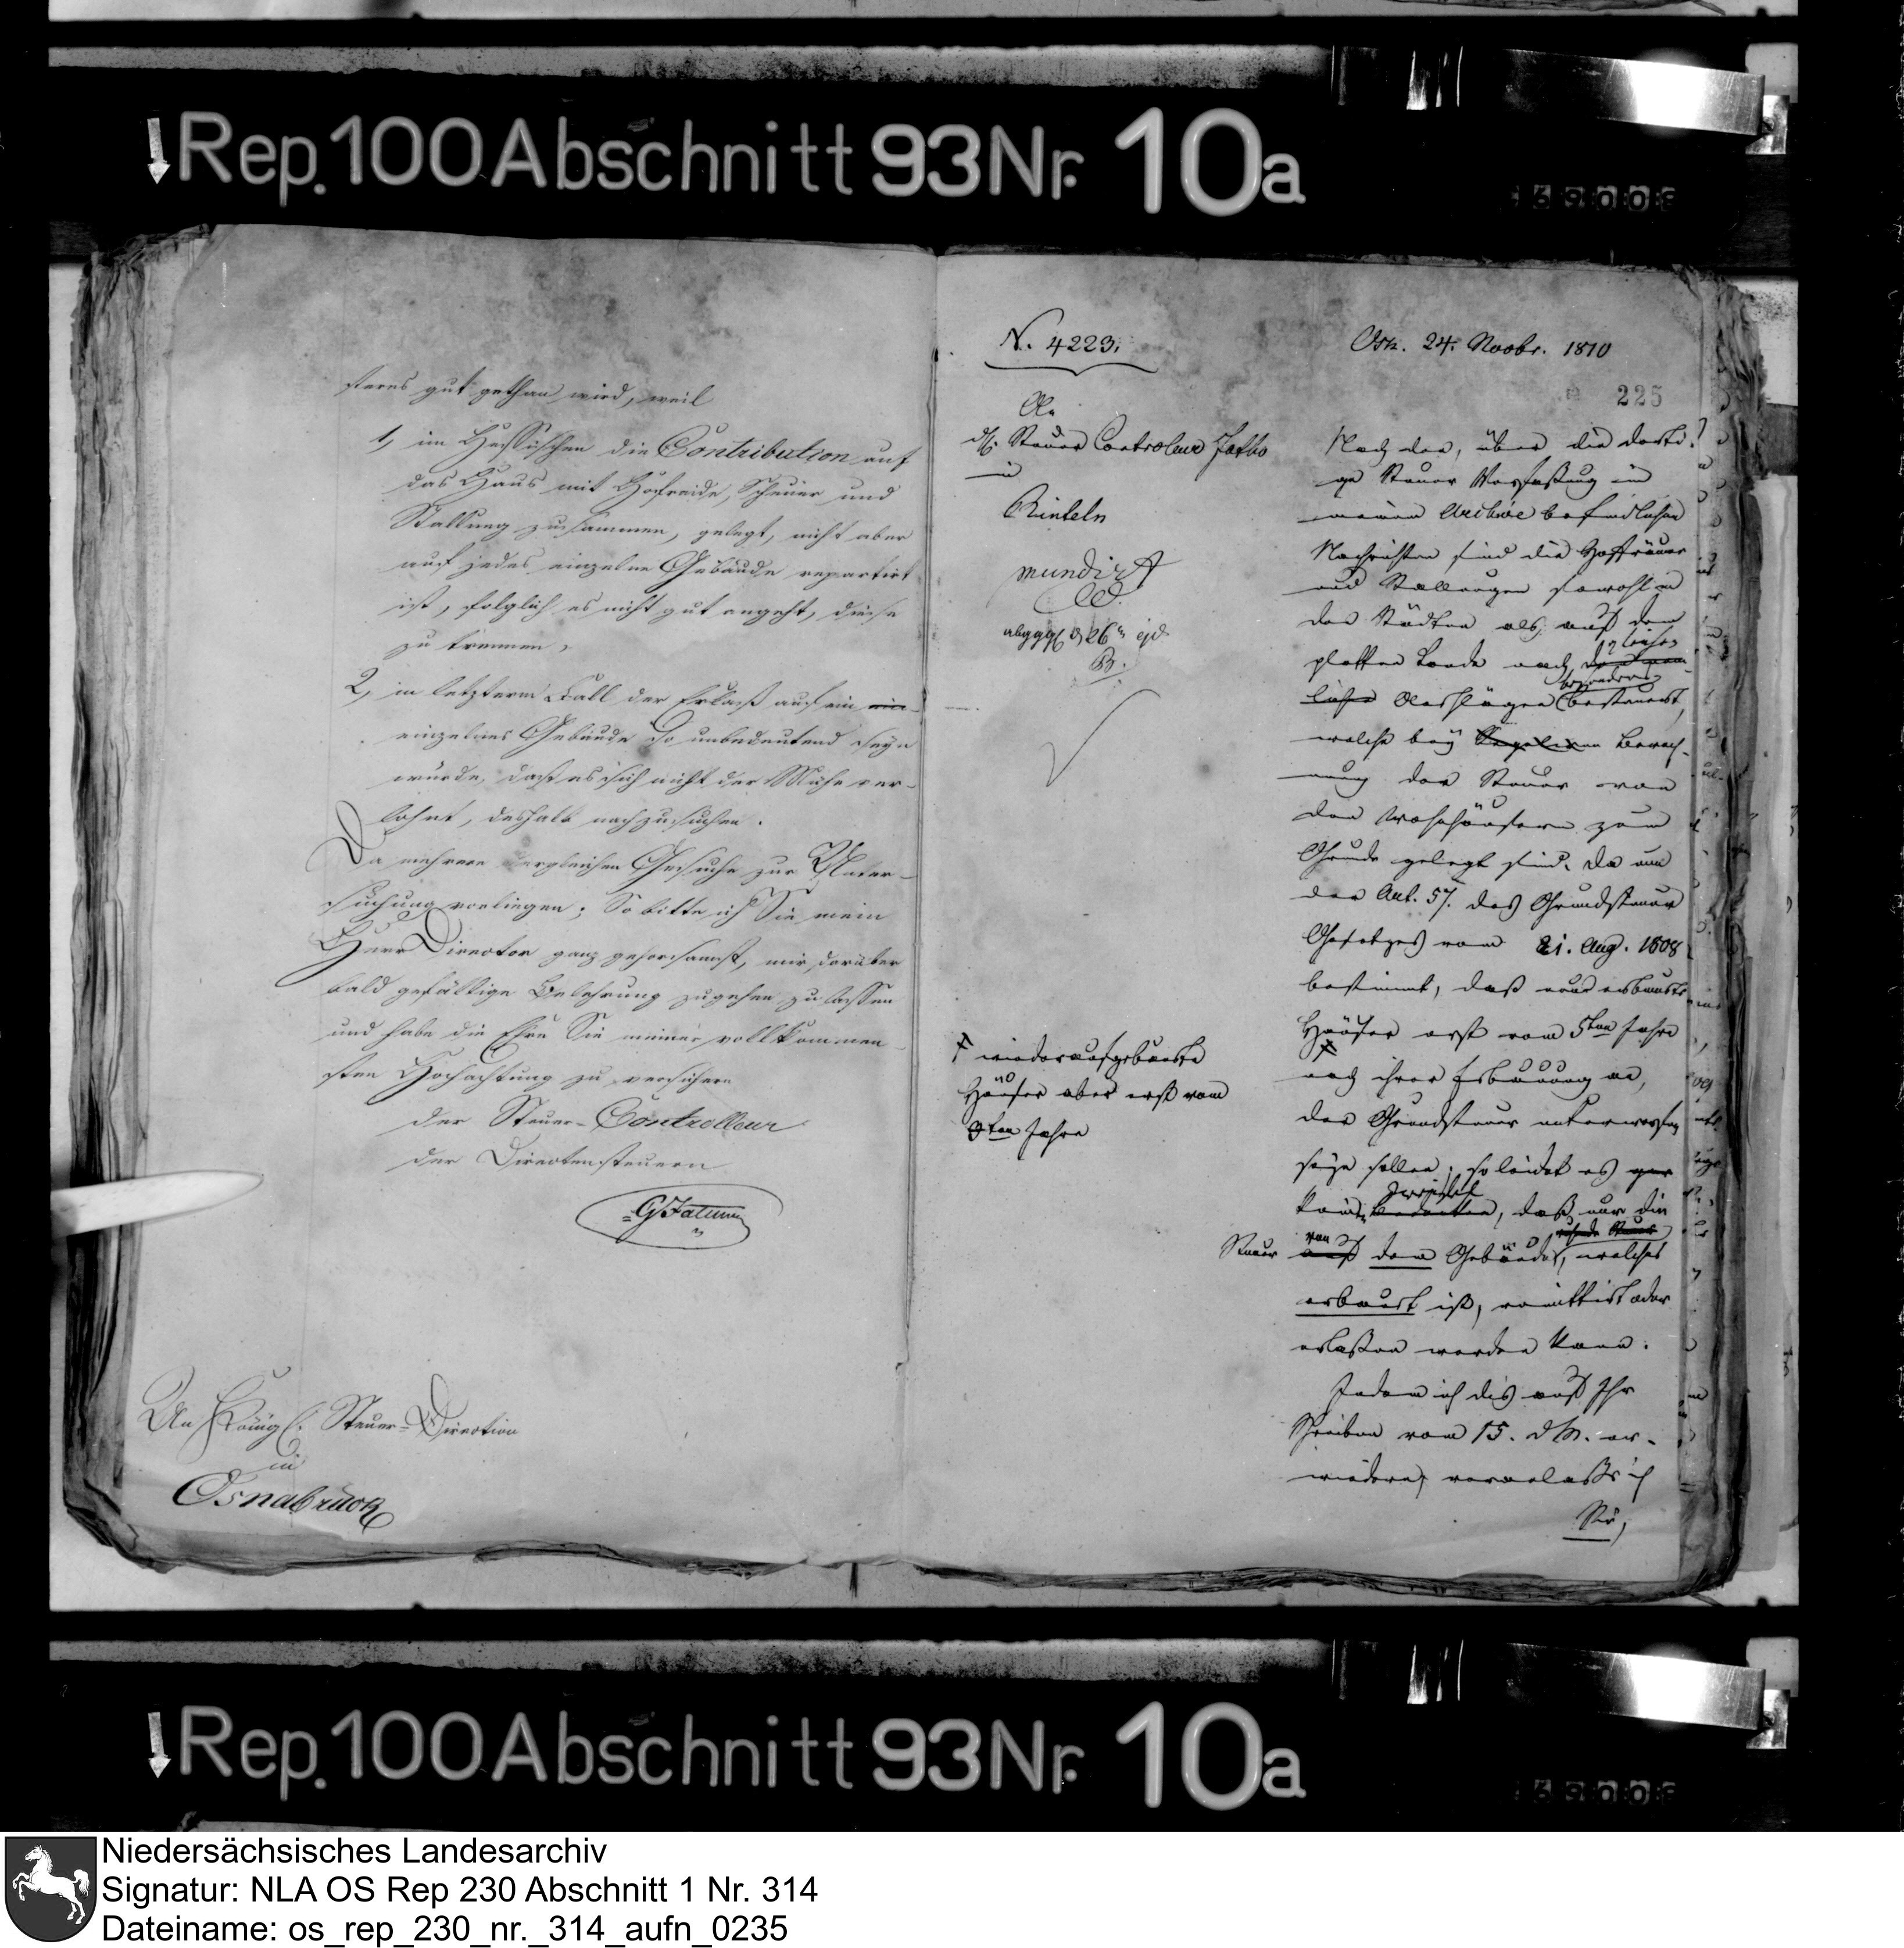 Rep. 100 Abschnitt 93 Nr. 10a
steres gut gethan wird, weil
1, im Hessischen die Contribution auf
das Haus mit Hofreide, Scheuer und
Stallung zusammen, gelegt, nicht aber
auf jedes einzelne Gebäude repartirt
ist, folglich es nicht gut angeht, diese
zu trennen,
2, in letzterm Fall der Erlaß auf ein ein-
einzelnes Gebäude so unbedeutend seyn
würde, daß es sich nicht der Mühe ver-
lohnt, deshalb nachzusuchen.
Da mehrere dergleichen Gesuche zur Unter-
suchung vorliegen; So bitte ich Sie mein
Herr Director ganz gehorsamst, mir darüber
bald gefällige Belehrung zugehen zu lassen
und habe die Ehre Sie meiner vollkommen-
sten Hochachtung zu versichern
der Steuer-Controlleur
der Directensteuern
An Königl. Steuer-Direction
in
Osnabrück
N. 4223.
An
d. H. Steuer Controleur
in
Rinteln
mundirt
26 ejd.
B.
† wiederaufgebaute
Häuser aber erst vom
3ten Jahre
Osn. 24. Novbr. 1810
225
Nach den, über die dorti-
ge Steuer Verfassung in
meinem Archive befindlichen
Nachrichten sind die
und Stallungen sowohl in
den Städten als auf dem
platten Lande nach
besonders
Anschlägen besteuert,
welche bey Berech-
nung der Steuer von
den Wohnhäusern zum
Grunde gelegt sind. Da nun
der Art. 57. des Grundsteuer
Gesetzes vom 21. Aug. 1808
bestimmt, daß neu erbaute
Häuser erst vom 5ten Jahre
†
nach ihrer Erbauung an,
der Grundsteuer unterworfen
seyn sollen; so leidet es
Zweifel
kein, daß nur die
Steuer von dem Gebäude, welches
erbauet ist, remittirt oder
erlaßen werden kann.
Indem ich dis auf Ihr
Schreiben vom 15. d. M. er-
wiedere, veranlaße ich
Sie,
Rep. 100 Abschnitt 93 Nr. 10a
Niedersächsisches Landesarchiv
Signatur: NLA OS Rep 230 Abschnitt 1 Nr. 314
Dateiname: os_rep_230_nr._314_aufn_0235